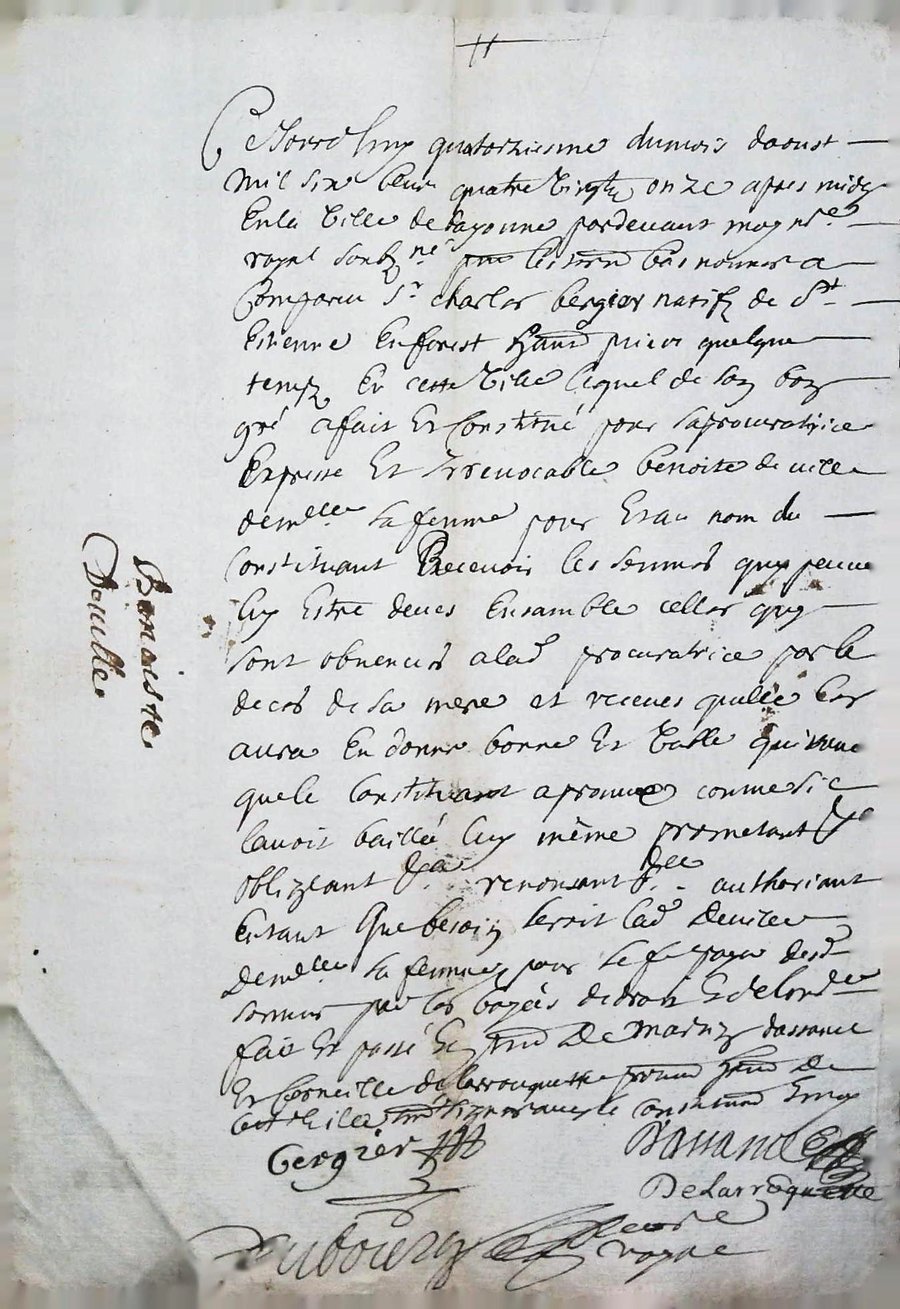 Ce Jourd'huy quatorziesme du mois daoust
mil six cens quatre vingts onze apres midy
En la Ville de bayonne pardevant moy nre
royal soubzne les bas nommes a
Comparu Sr charles bergier natif de St
Estienne En forest puis quelque
temps En cette Ville lequel de son bon
gré a fait Et Constitué pour sa procuratrice
Expresse Et Irrevocable benoite deville
demelle sa femme pour Et au nom du
Constituant Recevoir les sommes quy peuve
luy Estre deues Ensamble celles quy
sont obvenues a lad procuratrice par le
deces de sa mere et receues quelle les
aura En donner bonne Et Valle quittance
que le Constituant aprouve comme sil
lavoit baillée luy même prometant &c
obligeant &ca renonsant &ce authorisant
Entant Que besoin seroit lad Deville
Demelle sa femme pour se fe payer desd
sommes par les voyes de droit Et de
fait Et passé Es De Martin dassance
Et Corneille de larrouquette de
cette Ville signes avec le Constituant Et moy
Bergier
Dassance
Delarroquette
Dubourg
royal
Benoiste
Deville